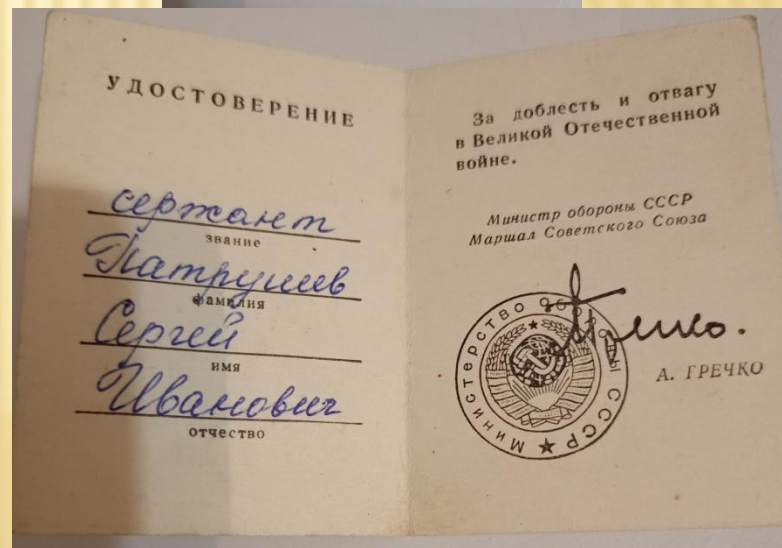 УДОСТОВЕРЕНИЕ
сержант
звание
Патрушев
фамилия
Сергей
имя
Иванович
отчество
За доблесть и отвагу
в Великой Отечественной
войне.
Министр обороны СССР
Маршал Советского Союза
Министерство обороны СССР
Гречко.
А. ГРЕЧКО